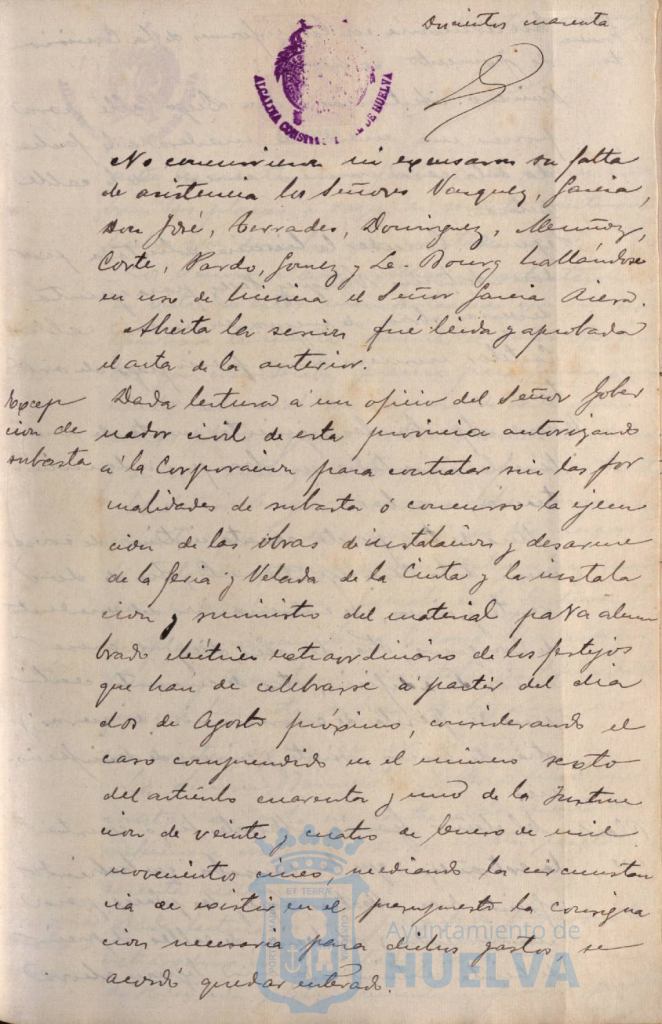 Doscientos cuarenta
ALCALDIA CONSTITUCIONAL DE HUELVA
No concurrieron ni excusaron su falta
de asistencia los Señores Vazquez, Garcia,
Don José, Terrades, Dominguez, Muñoz,
Corte, Pardo, Gomez y Le-Bourg hallándose
en uso de licencia el Señor Garcia
Abierta la sesion fué leida y aprobada
el acta de la anterior.
Excep
cion de
subasta
Dada lectura á un oficio del Señor Gober
nador civil de esta provincia autorizando
á la Corporacion para contratar sin las for
malidades de subasta ó concurso la ejecu
cion de las obras de instalacion y desarme
de la feria y Velada de la Cinta y la instala
cion y suministro del material para alum
brado eléctrico extraordinario de los festejos
que han de celebrarse á partir del dia
dos de Agosto próximo, considerando el
caso comprendido en el número sexto
del artículo cuarenta y uno de la Instruc
cion de veinte y cuatro de Enero de mil
novecientos cinco, mediando la circunstan
cia de existir en el presupuesto la consigna
cion necesaria para dichos gastos se
acordó quedar enterado.
Ayuntamiento de
HUELVA